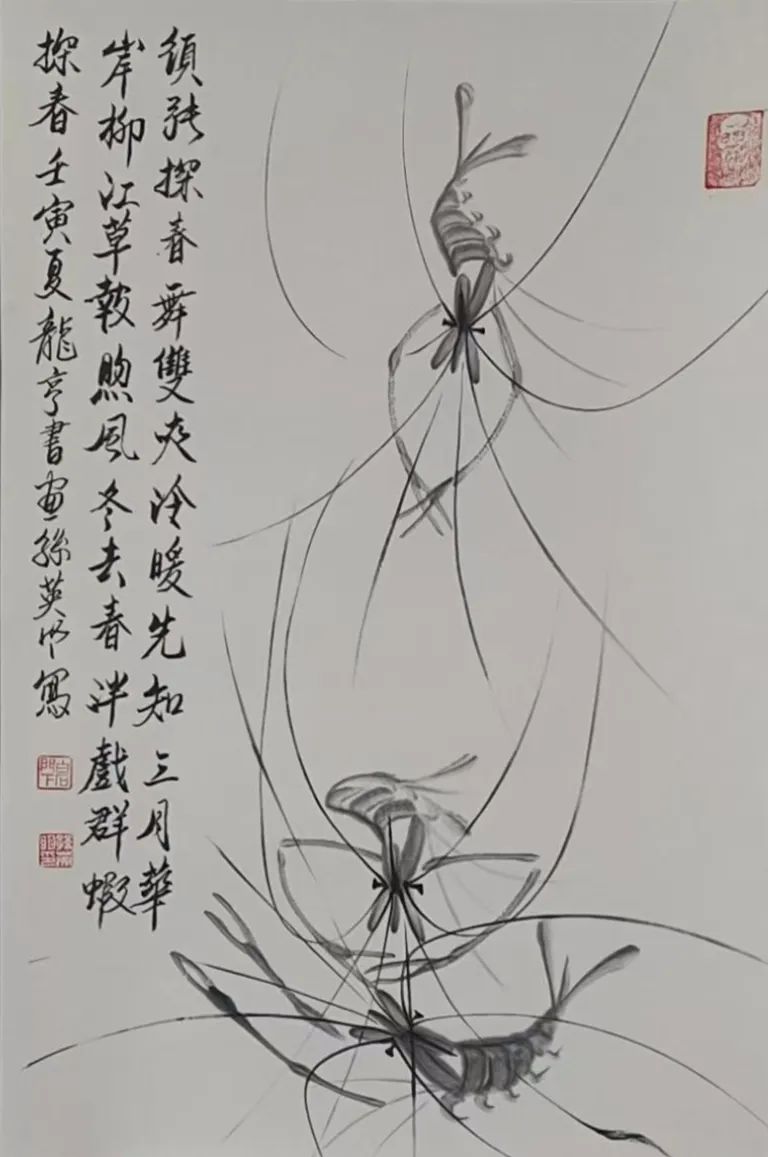 須能探春舞雙夾冷暖先知三月華
岸柳江草報煦風冬去春泮戲群蝦
探春壬寅夏龍亭書畫孫英 寫